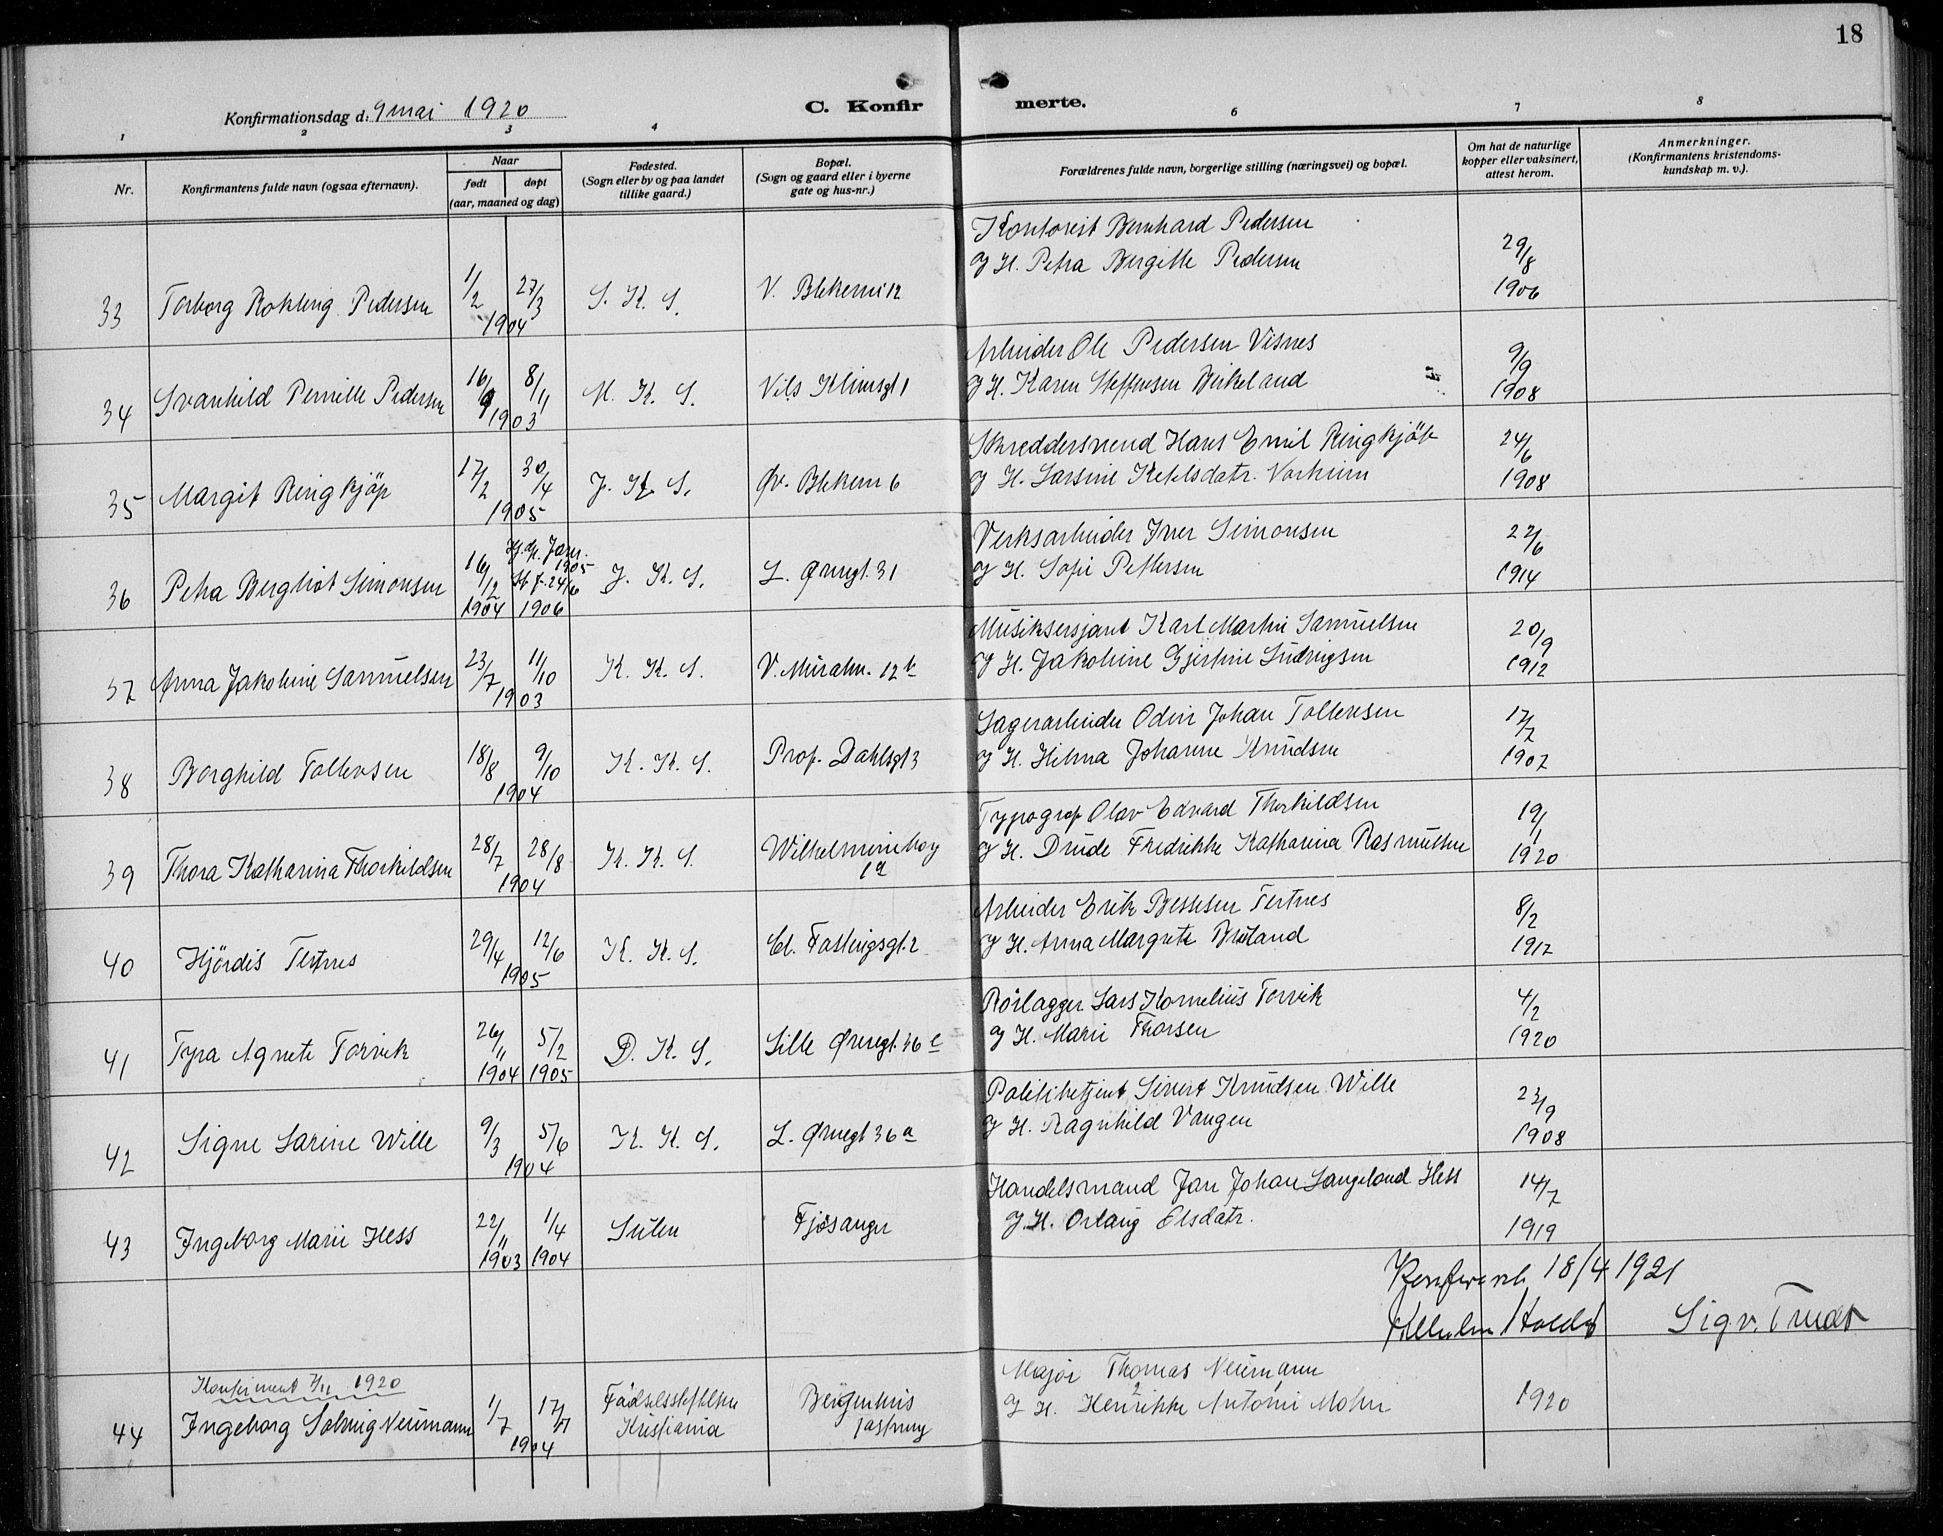 18
Konfirmationsdag d. 9 mai 1920
C. Konfirmerte.
1 2 3 4 6 7 8
Nr.
Konfirmantens fulde navn (ogsaa efternavn).
Naar
født døpt
(aar, maaned og dag)
Fødested.
(Sogn eller by og paa landet
tillike gaard.)
Bopæl.
(Sogn og gaard eller i byerne
gate og hus-nr.)
Forældrenes fulde navn, borgerlige stilling (næringsvei) og bopæl.
Om hat de naturlige
kopper eller vaksinert,
attest herom.
Anmerkninger.
(Konfirmantens kristendoms-
kundskap m. v.).
Kontorist Bernhard Pedersen
og H. Petra Bergitte Pedersen
33 Torborg Pedersen 1/2 27/3 1904 S. K. S. V. Blekevei 12 29/8 1906
Arbeider Ole Pedersen Visnes
34 Svanhild Pernille Pedersen 16/9 8/11 1903 M. K. S. Nils Klimsgt 1
og H. Karen Steffensen Birkeland 9/9 1908
Skreddersvend Hans Emil Ringkjöp
35 Margit Ringkjöp 17/2 30/4 1905 J. K. S. Øv. Blekevei 6
og H. Larsine Ketilsdatr. 24/6 1908
Verksarbeider Iver Simonsen
36 Petra Bergliot Simonsen 16/12 1904 Hj. dp. Janr. 1905 St. f. 24/6 1906 J. K. S. L. Øvregt. 31
og H. Sofie Pettersen 22/6 1914
Musiksersjant Karl Martin Samuelsen
37 Anna Jakobine Samuelsen 23/7 11/10 1903 K. K. S. V. Muralm. 12 b
og H. Jakobine Gjertine Ludvigsen 20/9 1912
Lagerarbeider Odin Johan Tollevsen
38 Borghild Tollevsen 18/8 9/10 1904 K. K. S. Prof. Dahlsgt 3
og H. Hilma Johanne Knudsen 17/7 1907
Typograf Olav Edvard Thorkildsen
39 Thora Katharina Thorkildsen 28/7 28/8 1904 K. K. S. Wilhelmineborg 1a
og H. Drude Fredrikke Katharina Rasmussen 19/1 1920
Arbeider Erik Bessesen Tertnes
40 Hjördis Tertnes 29/4 12/6 1905 K. K. S. Cl. Fastingsgt. 2
og H. Anna Margrete 8/2 1917
Rörlægger Lars Kornelius Torvik
41 Tyra Agnete Torvik 26/11 1904 5/2 1905 D. K. S. Lille Øvregt. 36 c
og H. Marie Thorsen 4/2 1920
Politibetjent Sivert Knudsen Wille
42 Signe Sarine Wille 9/3 5/6 1904 K. K. S. L. Øvregt 36 a
og H. Ragnhild Vangen 23/9 1908
Handelsmand Jan Johan Langeland Hess
43 Ingeborg Marie Hess 22/11 1903 1/4 1904 Sulen Fjøsanger
og H. Orlaug Elsdatr. 14/7 1919
Konfereret 18/4 1921
Sigv. Trudt
Konfirmert 7/11 1920
Major Thomas Neumann
44 Ingeborg Solveig Neumann 1/7 17/11 1904 Fødselsstiftelsen Kristiania Bergenhus fæstning
og H. Henrikke Antonie Mohn 1920